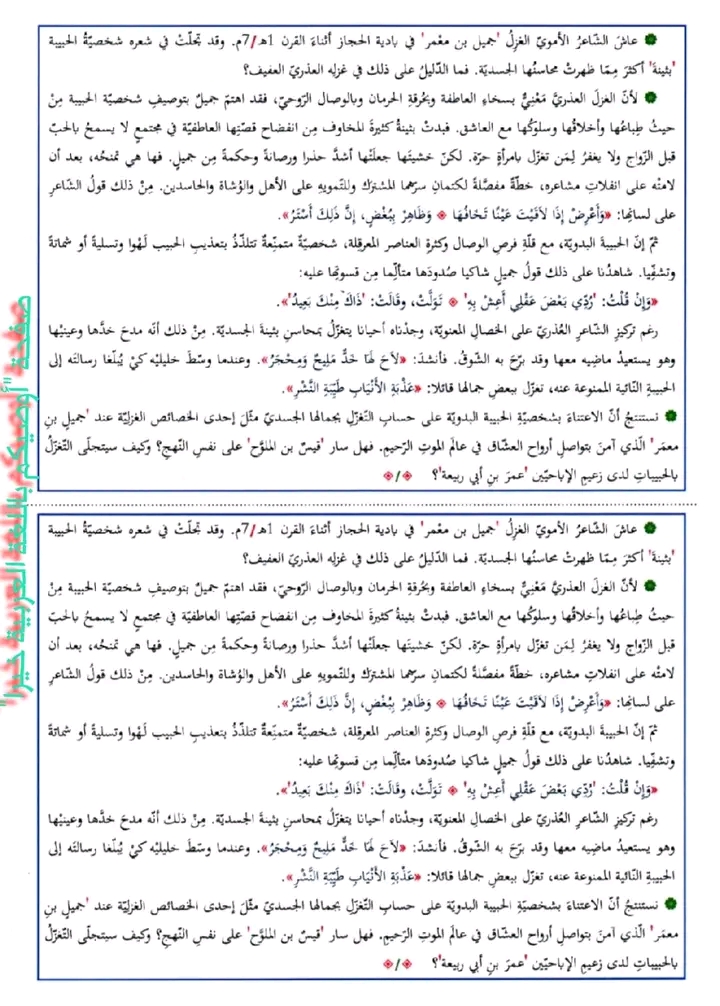 عاشَ الشّاعرُ الأمويّ الغزِلُ 'جميل بن معْمر' في بادية الحجاز أثناءَ القرن 1هـ/7م. وقد تجلّتْ في شعره شخصيّةُ الحبيبة
'بثينة' أكثرَ مِمّا ظهرتْ محاسنُها الجسديّة. فما الدّليلُ على ذلك في غزلِه العذريّ العفيف؟
لأنّ الغزل العذريَّ مَعْنِيٌّ بسخاءِ العاطفة وبحُرقةِ الحرمان وبالوصال الرّوحيّ، فقد اهتمّ جميلٌ بتوصيفِ شخصيّة الحبيبة مِنْ
حيثُ طِباعُها وأخلاقُها وسلوكُها مع العاشق. فبدتْ بثينةُ كثيرةَ المخاوف مِن انفضاح قصّتِها العاطفيّة في مجتمعٍ لا يسمحُ بالحبّ
قبل الزّواج ولا يغفرُ لِمَن تغزّل بامرأةٍ حرّة. لكنّ خشيتَها جعلتْها أشدَّ حذرا ورصانةً وحكمةً مِن جميلٍ. فها هي تمنحُه، بعد أن
لامتْه على انفلاتِ مشاعره، خطّةً مفصّلةً لكتمانِ سرّهما المشترَك وللتّمويهِ على الأهلِ والوُشاة والحاسدين. مِنْ ذلك قولُ الشّاعرِ
على لسانِها: «وَأَعْرِضْ إِذَا لاَقَيْتَ عَيْنًا تَخَافُهَا ۞ وَظَاهِرْ بِبُغْضٍ، إِنَّ ذَلِكَ أَسْتَرُ».
ثمّ إنّ الحبيبةَ البدويّة، مع قلّةِ فرصِ الوصال وكثرةِ العناصر المعرقِلة، شخصيّةٌ متمنِّعةٌ تتلذّذُ بتعذيبِ الحبيب لَهْوا وتسليةً أو شماتةً
وتشفّيا. شاهدُنا على ذلك قولُ جميلٍ شاكيا صُدودَها متألّما مِن قسوتِها عليه:
«وَإِنْ قُلْتُ: 'رُدِّي بَعْضَ عَقْلِي أَعِشْ بِهِ' ۞ تَوَلَّتْ، وقَالَتْ: 'ذَاكَ مِنْكَ بَعِيدُ'».
رغم تركيزِ الشّاعرِ العُذريّ على الخصالِ المعنويّة، وجدْناه أحيانا يتغزّلُ بمحاسنِ بثينةَ الجسديّة. مِنْ ذلك أنّه مدحَ خدَّها وعينيْها
وهو يستعيدُ ماضِيه معها وقد برّح به الشّوقُ. فأنشدَ: «لاَحَ لَهَا خَدٌّ مَلِيحٌ وَمِحْجَرُ». وعندما وسّطَ خليليْه كيْ يُبلّغا رسالتَه إلى
الحبيبةِ النّائية الممنوعة عنه، تغزّل ببعضِ جمالها قائلا: «عَذْبَةِ الأَنْيَابِ طَيِّبَةِ النَّشْرِ».
نستنتجُ أنّ الاعتناءَ بشخصيّةِ الحبيبة البدويّة على حسابِ التّغزّلِ بجمالها الجسديّ مثّلَ إحدى الخصائص الغزليّة عند 'جميلِ بنِ
معمر' الّذي آمنَ بتواصلِ أرواح العشّاق في عالَمِ الموتِ الرّحيم. فهل سار 'قيسُ بن الملوَّح' على نفسِ النّهج؟ وكيف سيتجلّى التّغزّلُ
بالحبيباتِ لدى زعيمِ الإباحيّين 'عمرَ بنِ أبي ربيعة'؟ ۞/۞
عاشَ الشّاعرُ الأمويّ الغزِلُ 'جميل بن معْمر' في بادية الحجاز أثناءَ القرن 1هـ/7م. وقد تجلّتْ في شعره شخصيّةُ الحبيبة
'بثينة' أكثرَ مِمّا ظهرتْ محاسنُها الجسديّة. فما الدّليلُ على ذلك في غزلِه العذريّ العفيف؟
لأنّ الغزل العذريَّ مَعْنِيٌّ بسخاءِ العاطفة وبحُرقةِ الحرمان وبالوصال الرّوحيّ، فقد اهتمّ جميلٌ بتوصيفِ شخصيّة الحبيبة مِنْ
حيثُ طِباعُها وأخلاقُها وسلوكُها مع العاشق. فبدتْ بثينةُ كثيرةَ المخاوف مِن انفضاح قصّتِها العاطفيّة في مجتمعٍ لا يسمحُ بالحبّ
قبل الزّواج ولا يغفرُ لِمَن تغزّل بامرأةٍ حرّة. لكنّ خشيتَها جعلتْها أشدَّ حذرا ورصانةً وحكمةً مِن جميلٍ. فها هي تمنحُه، بعد أن
لامتْه على انفلاتِ مشاعره، خطّةً مفصّلةً لكتمانِ سرّهما المشترَك وللتّمويهِ على الأهلِ والوُشاة والحاسدين. مِنْ ذلك قولُ الشّاعرِ
على لسانِها: «وَأَعْرِضْ إِذَا لاَقَيْتَ عَيْنًا تَخَافُهَا ۞ وَظَاهِرْ بِبُغْضٍ، إِنَّ ذَلِكَ أَسْتَرُ».
ثمّ إنّ الحبيبةَ البدويّة، مع قلّةِ فرصِ الوصال وكثرةِ العناصر المعرقِلة، شخصيّةٌ متمنِّعةٌ تتلذّذُ بتعذيبِ الحبيب لَهْوا وتسليةً أو شماتةً
وتشفّيا. شاهدُنا على ذلك قولُ جميلٍ شاكيا صُدودَها متألّما مِن قسوتِها عليه:
«وَإِنْ قُلْتُ: 'رُدِّي بَعْضَ عَقْلِي أَعِشْ بِهِ' ۞ تَوَلَّتْ، وقَالَتْ: 'ذَاكَ مِنْكَ بَعِيدُ'».
رغم تركيزِ الشّاعرِ العُذريّ على الخصالِ المعنويّة، وجدْناه أحيانا يتغزّلُ بمحاسنِ بثينةَ الجسديّة. مِنْ ذلك أنّه مدحَ خدَّها وعينيْها
وهو يستعيدُ ماضِيه معها وقد برّح به الشّوقُ. فأنشدَ: «لاَحَ لَهَا خَدٌّ مَلِيحٌ وَمِحْجَرُ». وعندما وسّطَ خليليْه كيْ يُبلّغا رسالتَه إلى
الحبيبةِ النّائية الممنوعة عنه، تغزّل ببعضِ جمالها قائلا: «عَذْبَةِ الأَنْيَابِ طَيِّبَةِ النَّشْرِ».
نستنتجُ أنّ الاعتناءَ بشخصيّةِ الحبيبة البدويّة على حسابِ التّغزّلِ بجمالها الجسديّ مثّلَ إحدى الخصائص الغزليّة عند 'جميلِ بنِ
معمر' الّذي آمنَ بتواصلِ أرواح العشّاق في عالَمِ الموتِ الرّحيم. فهل سار 'قيسُ بن الملوَّح' على نفسِ النّهج؟ وكيف سيتجلّى التّغزّلُ
بالحبيباتِ لدى زعيمِ الإباحيّين 'عمرَ بنِ أبي ربيعة'؟ ۞/۞
صفحة "أوصيكم باللغة العربية خيرا"